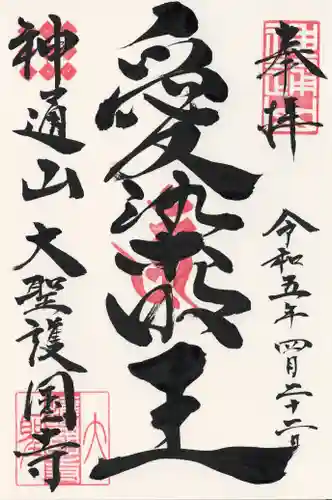 奉拝
令和五年四月二十二日
愛染明王
神通山
大聖護国寺